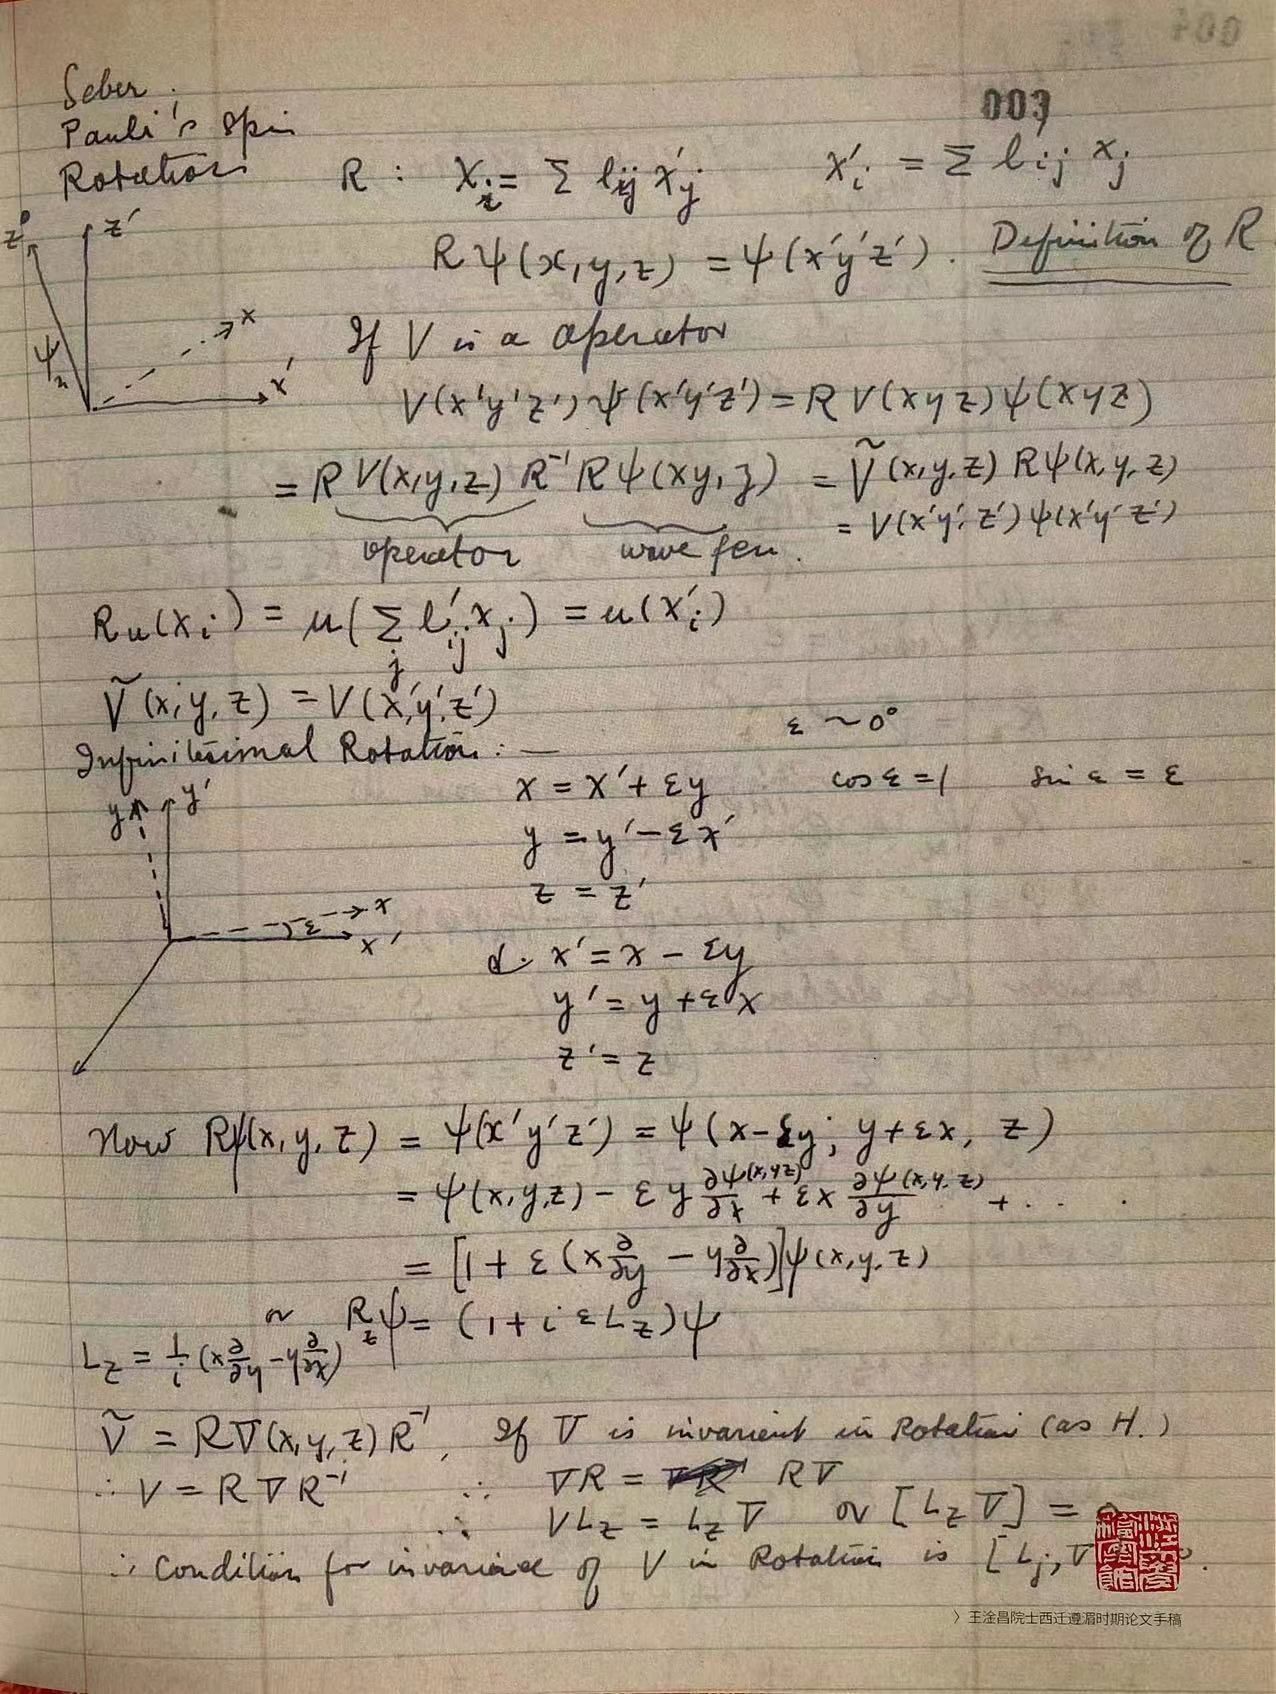 003
Seber.
Pauli's Spin
Rotation
R : Xᵢ = Σ lᵢⱼ x'ⱼ    x'ᵢ = Σ lᵢⱼ xⱼ
z z'
R ψ(x,y,z) = ψ(x'y'z'). Definition of R
x
x'
If V is a operator
V(x'y'z') ψ(x'y'z') = R V(xyz) ψ(xyz)
= R V(x,y,z) R⁻¹ R ψ(xy,z) = Ṽ(x,y,z) R ψ(x,y,z)
= V(x'y'z') ψ(x'y'z')
operator wave fcn.
R u(xᵢ) = u(Σⱼ l'ᵢⱼ xⱼ) = u(x'ᵢ)
Ṽ(x,y,z) = V(x',y',z')
ε ~ 0°
Infinitesimal Rotation : —
x = x' + εy    cos ε = 1    sin ε = ε
y y'
y = y' − εx'
z = z'
ε x
x'
x' = x − εy
y' = y + εx
z' = z
Now Rψ(x,y,z) = ψ(x'y'z') = ψ(x−εy; y+εx, z)
= ψ(x,y,z) − εy ∂ψ(x,yz)/∂x + εx ∂ψ(x,y,z)/∂y + . . .
= [1 + ε(x ∂/∂y − y ∂/∂x)] ψ(x,y,z)
or R_z ψ = (1 + i ε L_z) ψ
L_z = 1/i (x ∂/∂y − y ∂/∂x)
Ṽ = R V(x,y,z) R⁻¹, If V is invarient in Rotation (as H.)
∴ V = R V R⁻¹    ∴ VR = RV
∴ V L_z = L_z V or [L_z V] = 0
∴ Condition for invariance of V in Rotation is [Lⱼ, V
〉王淦昌院士西迁遵湄时期论文手稿